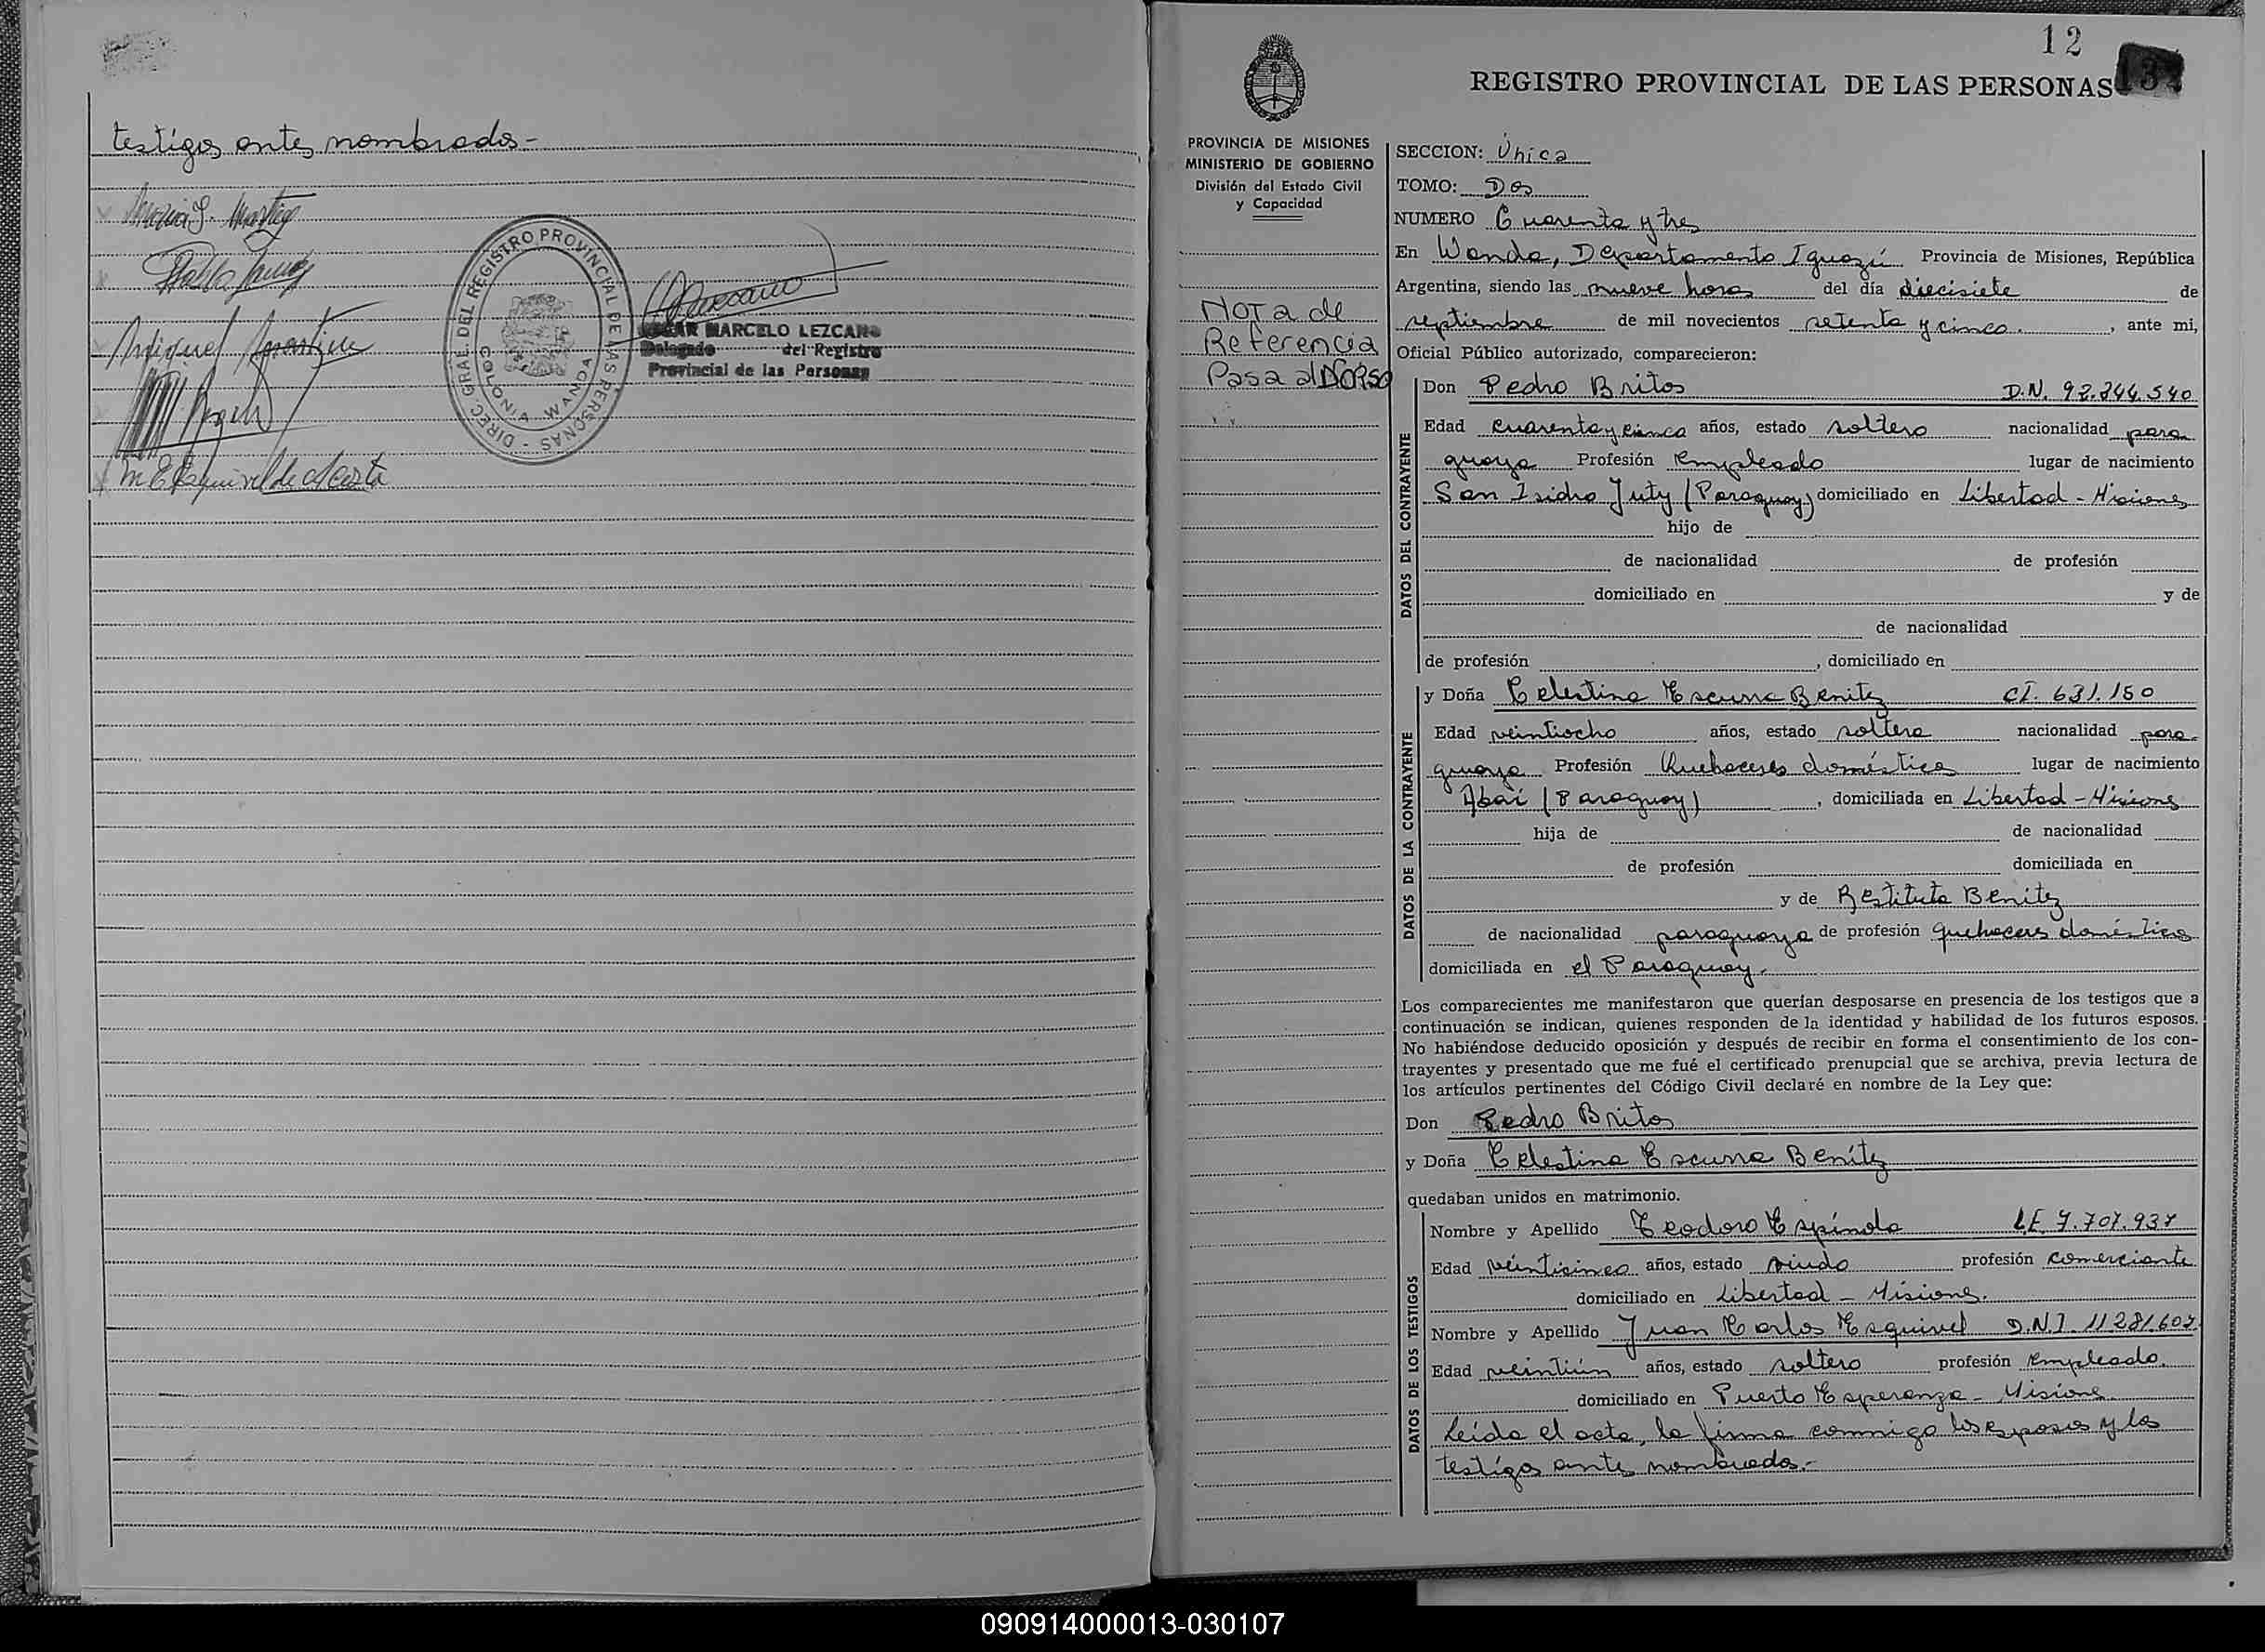 testigos antes nombrados-
DIREC. GRAL. DEL REGISTRO PROVINCIAL DE LAS PERSONAS -
COLONIA WANDA
MARCELO LEZCANO
Delegado del Registro
Provincial de las Personas
M E Esquivel de Acosta
12
REGISTRO PROVINCIAL DE LAS PERSONAS
PROVINCIA DE MISIONES
MINISTERIO DE GOBIERNO
División del Estado Civil
y Capacidad
NOTA de
Referencia
Pasa al DORSO
SECCION: Única
TOMO: Dos
NUMERO Cuarenta y tres
En Wanda, Departamento Iguazú Provincia de Misiones, República
Argentina, siendo las nueve horas del día diecisiete de
septiembre de mil novecientos setenta y cinco. , ante mi,
Oficial Público autorizado, comparecieron:
DATOS DEL CONTRAYENTE
Don Pedro Britos D.N. 92.244.540
Edad cuarenta y cinco años, estado soltero nacionalidad para-
guaya Profesión Empleado lugar de nacimiento
San Isidro Juty (Paraguay) domiciliado en Libertad - Misiones
hijo de
de nacionalidad de profesión
domiciliado en y de
de nacionalidad
de profesión , domiciliado en
DATOS DE LA CONTRAYENTE
y Doña Celestina Escurra Benítez CI. 631.180
Edad veintiocho años, estado soltera nacionalidad para-
guaya Profesión Quehaceres domésticos lugar de nacimiento
Abaí (Paraguay) , domiciliada en Libertad - Misiones
hija de de nacionalidad
de profesión domiciliada en
y de Restituta Benítez
de nacionalidad paraguaya de profesión quehaceres domésticos
domiciliada en el Paraguay.
Los comparecientes me manifestaron que querían desposarse en presencia de los testigos que a
continuación se indican, quienes responden de la identidad y habilidad de los futuros esposos.
No habiéndose deducido oposición y después de recibir en forma el consentimiento de los con-
trayentes y presentado que me fué el certificado prenupcial que se archiva, previa lectura de
los artículos pertinentes del Código Civil declaré en nombre de la Ley que:
Don Pedro Britos
y Doña Celestina Escurra Benítez
quedaban unidos en matrimonio.
DATOS DE LOS TESTIGOS
Nombre y Apellido Teodoro Espínola L.E. 7.707.937
Edad veinticinco años, estado viudo profesión comerciante
domiciliado en Libertad - Misiones.
Nombre y Apellido Juan Carlos Esquivel D.N.I. 11.281.607
Edad veintiún años, estado soltero profesión empleado.
domiciliado en Puerto Esperanza - Misiones
Leída el acta, la firma conmigo los esposos y los
testigos antes nombrados.-
090914000013-030107